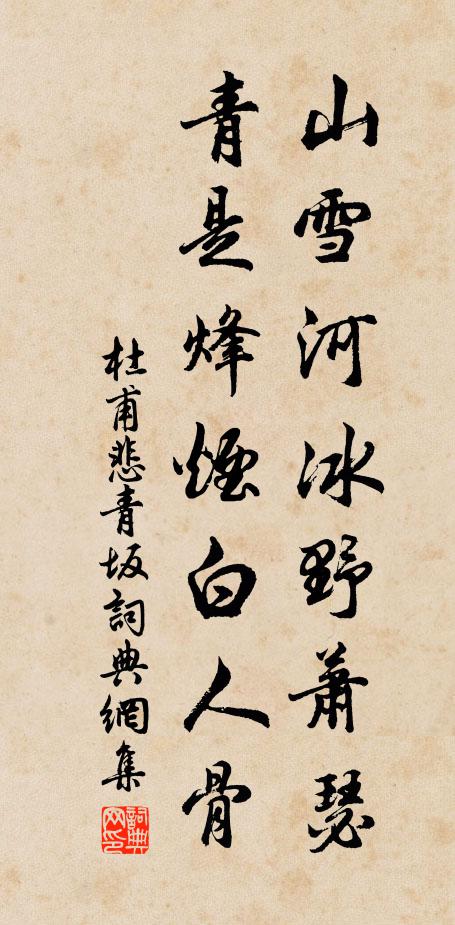 山雪河冰野蕭瑟
青是烽煙白人骨
杜甫悲青坂詞典網集
詞典網印